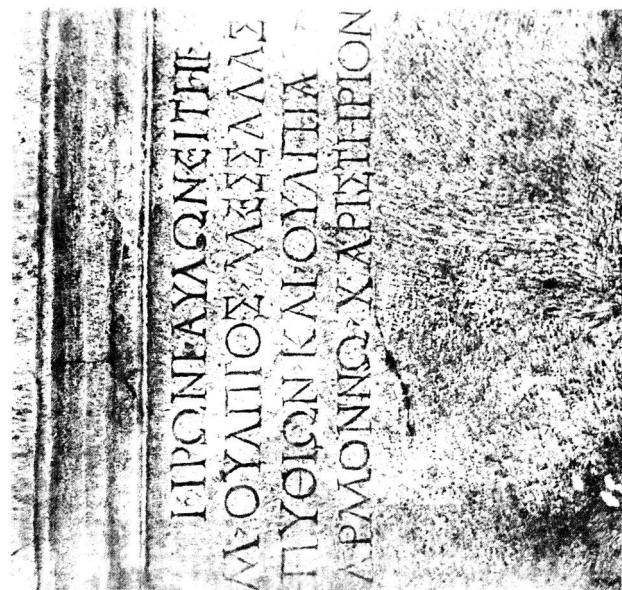 ΗΡΩΝΙΑΥΛΩΝΕΙΤΗΙ
Μ·ΟΥΛΠΙΟΣ ΜΕΣΣΑΛΑΣ
ΠΥΘΙΩΝ ΚΑΙ ΟΥΛΠΙΑ
ΑΡΜΟΝΝΩ·ΧΑΡΙΣΤΗΡΙΟΝ